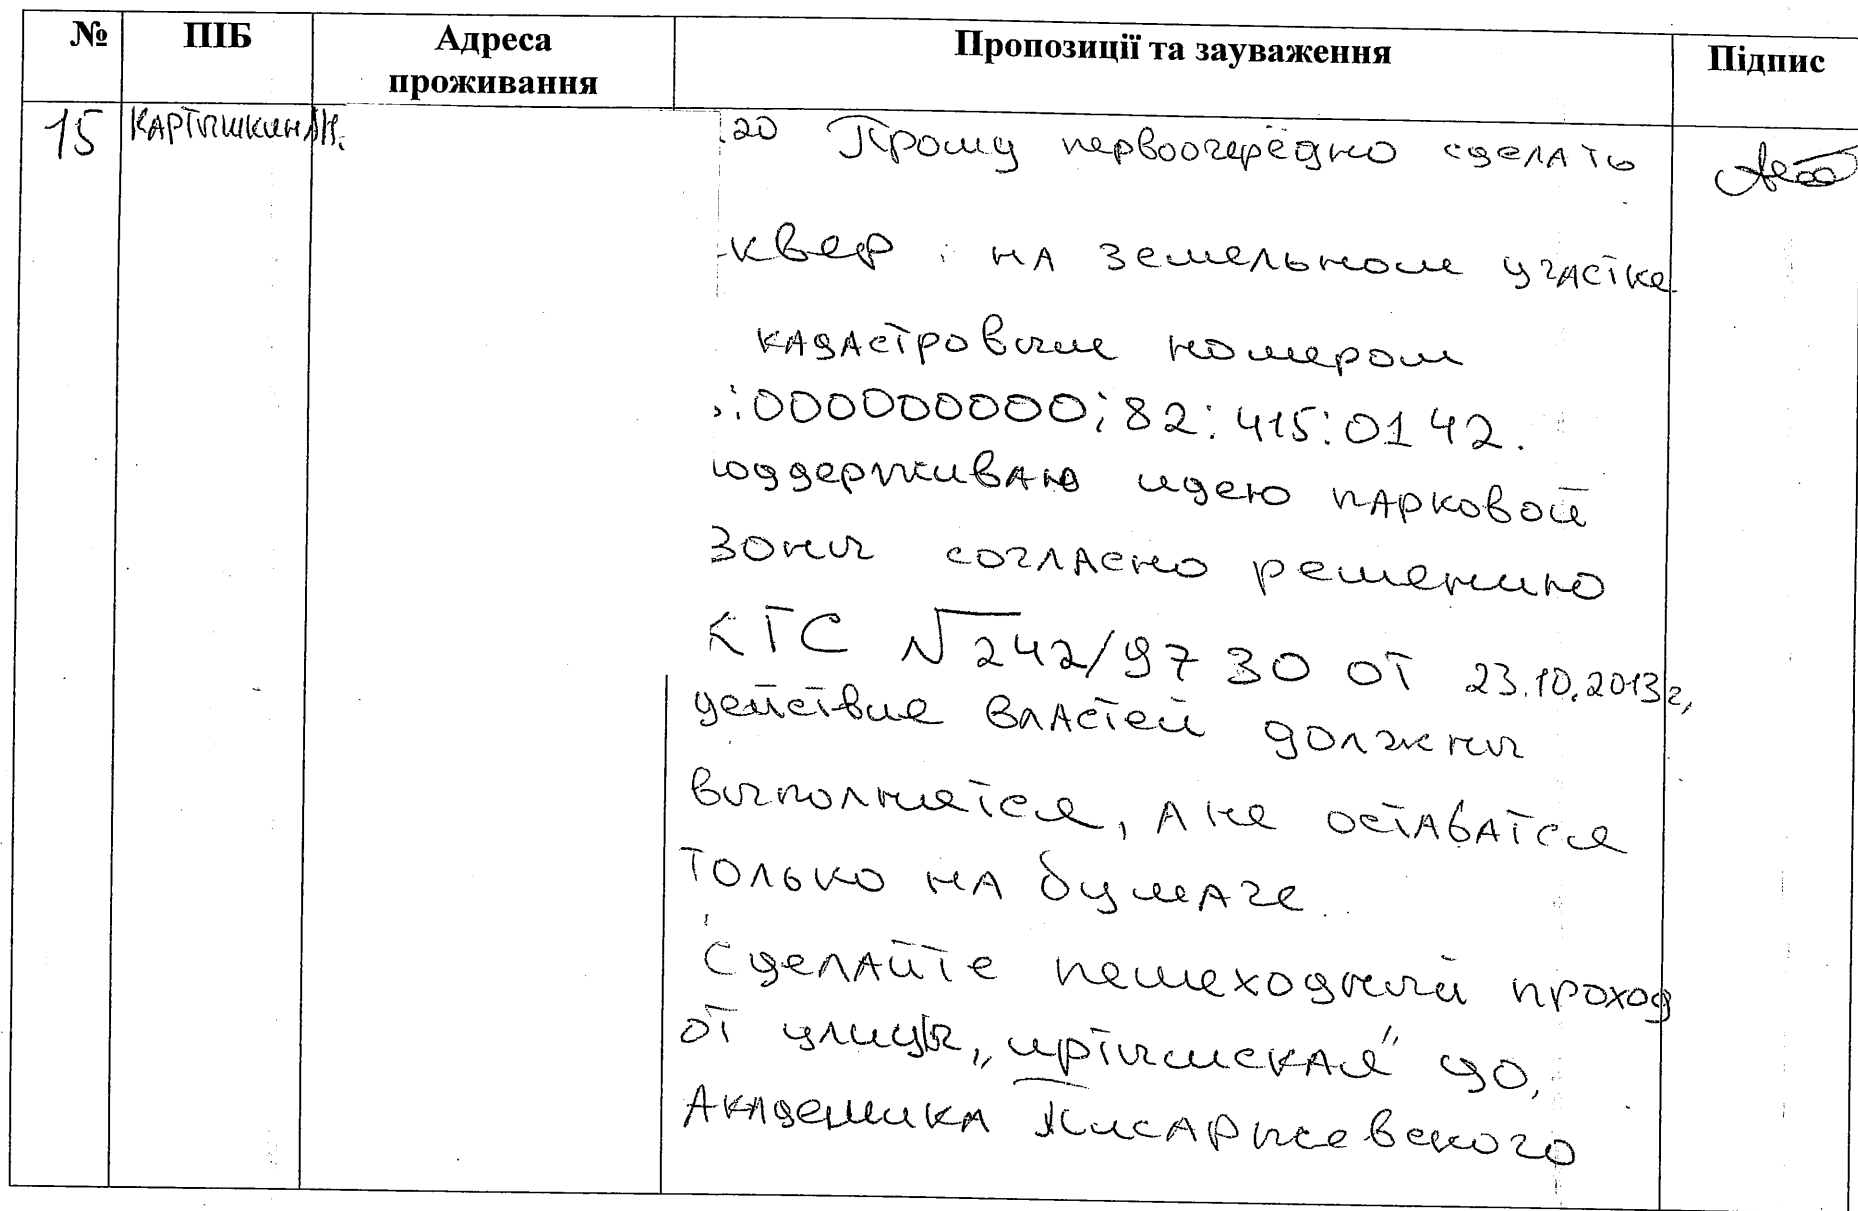 № ПІБ Адреса проживання Пропозиції та зауваження Підпис
15 Картышкин .20 Прошу первоочерёдно сделать
квер на земельном участке
кадастровым номером
:000000000:82:415:0142.
оддерживаю идею парковой
зоны согласно решению
КГС №242/9730 от 23.10.2013г,
действие властей должны
выполнятся, а не оставатся
только на бумаге.
Сделайте пешеходный проход
от улицы „иртышская" до,
Академика Писаржевского